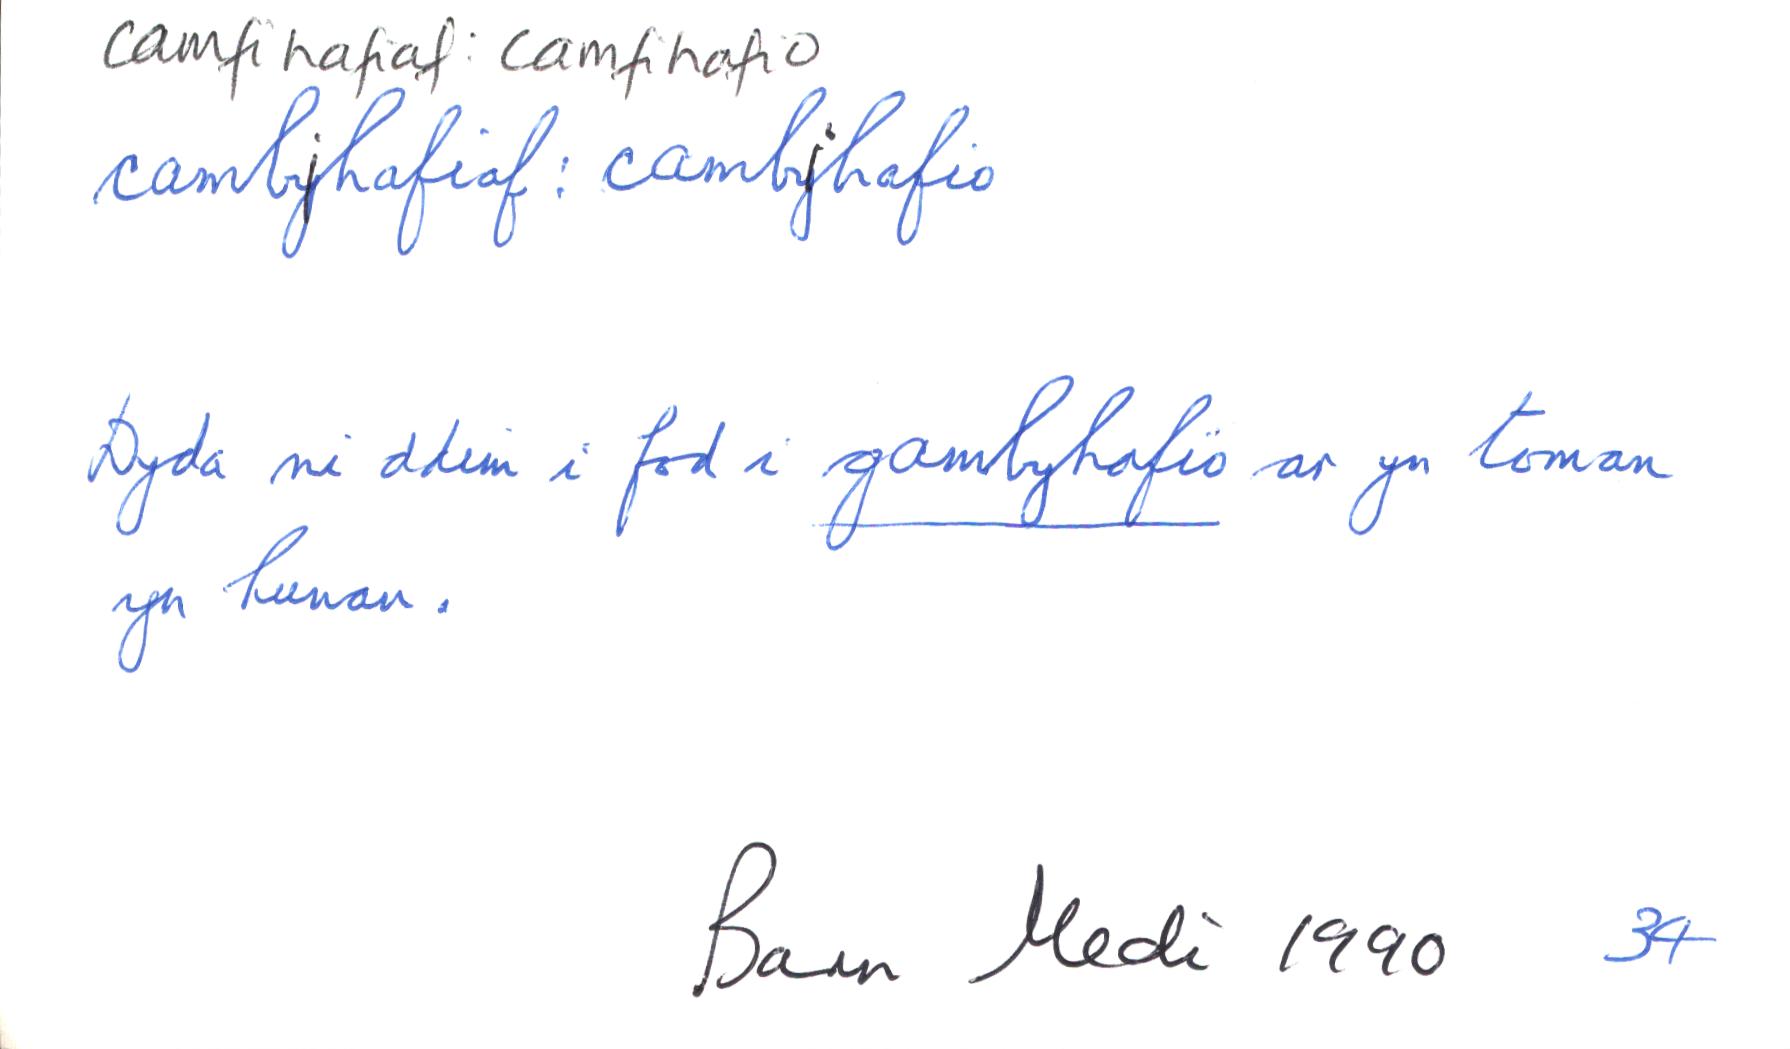 camfihafiaf: camfihafio
cambihafiaf: cambihafio
Dyda ni ddim i fod i gambyhafio ar yn toman
yn hunan.
Barn Medi 1990 34